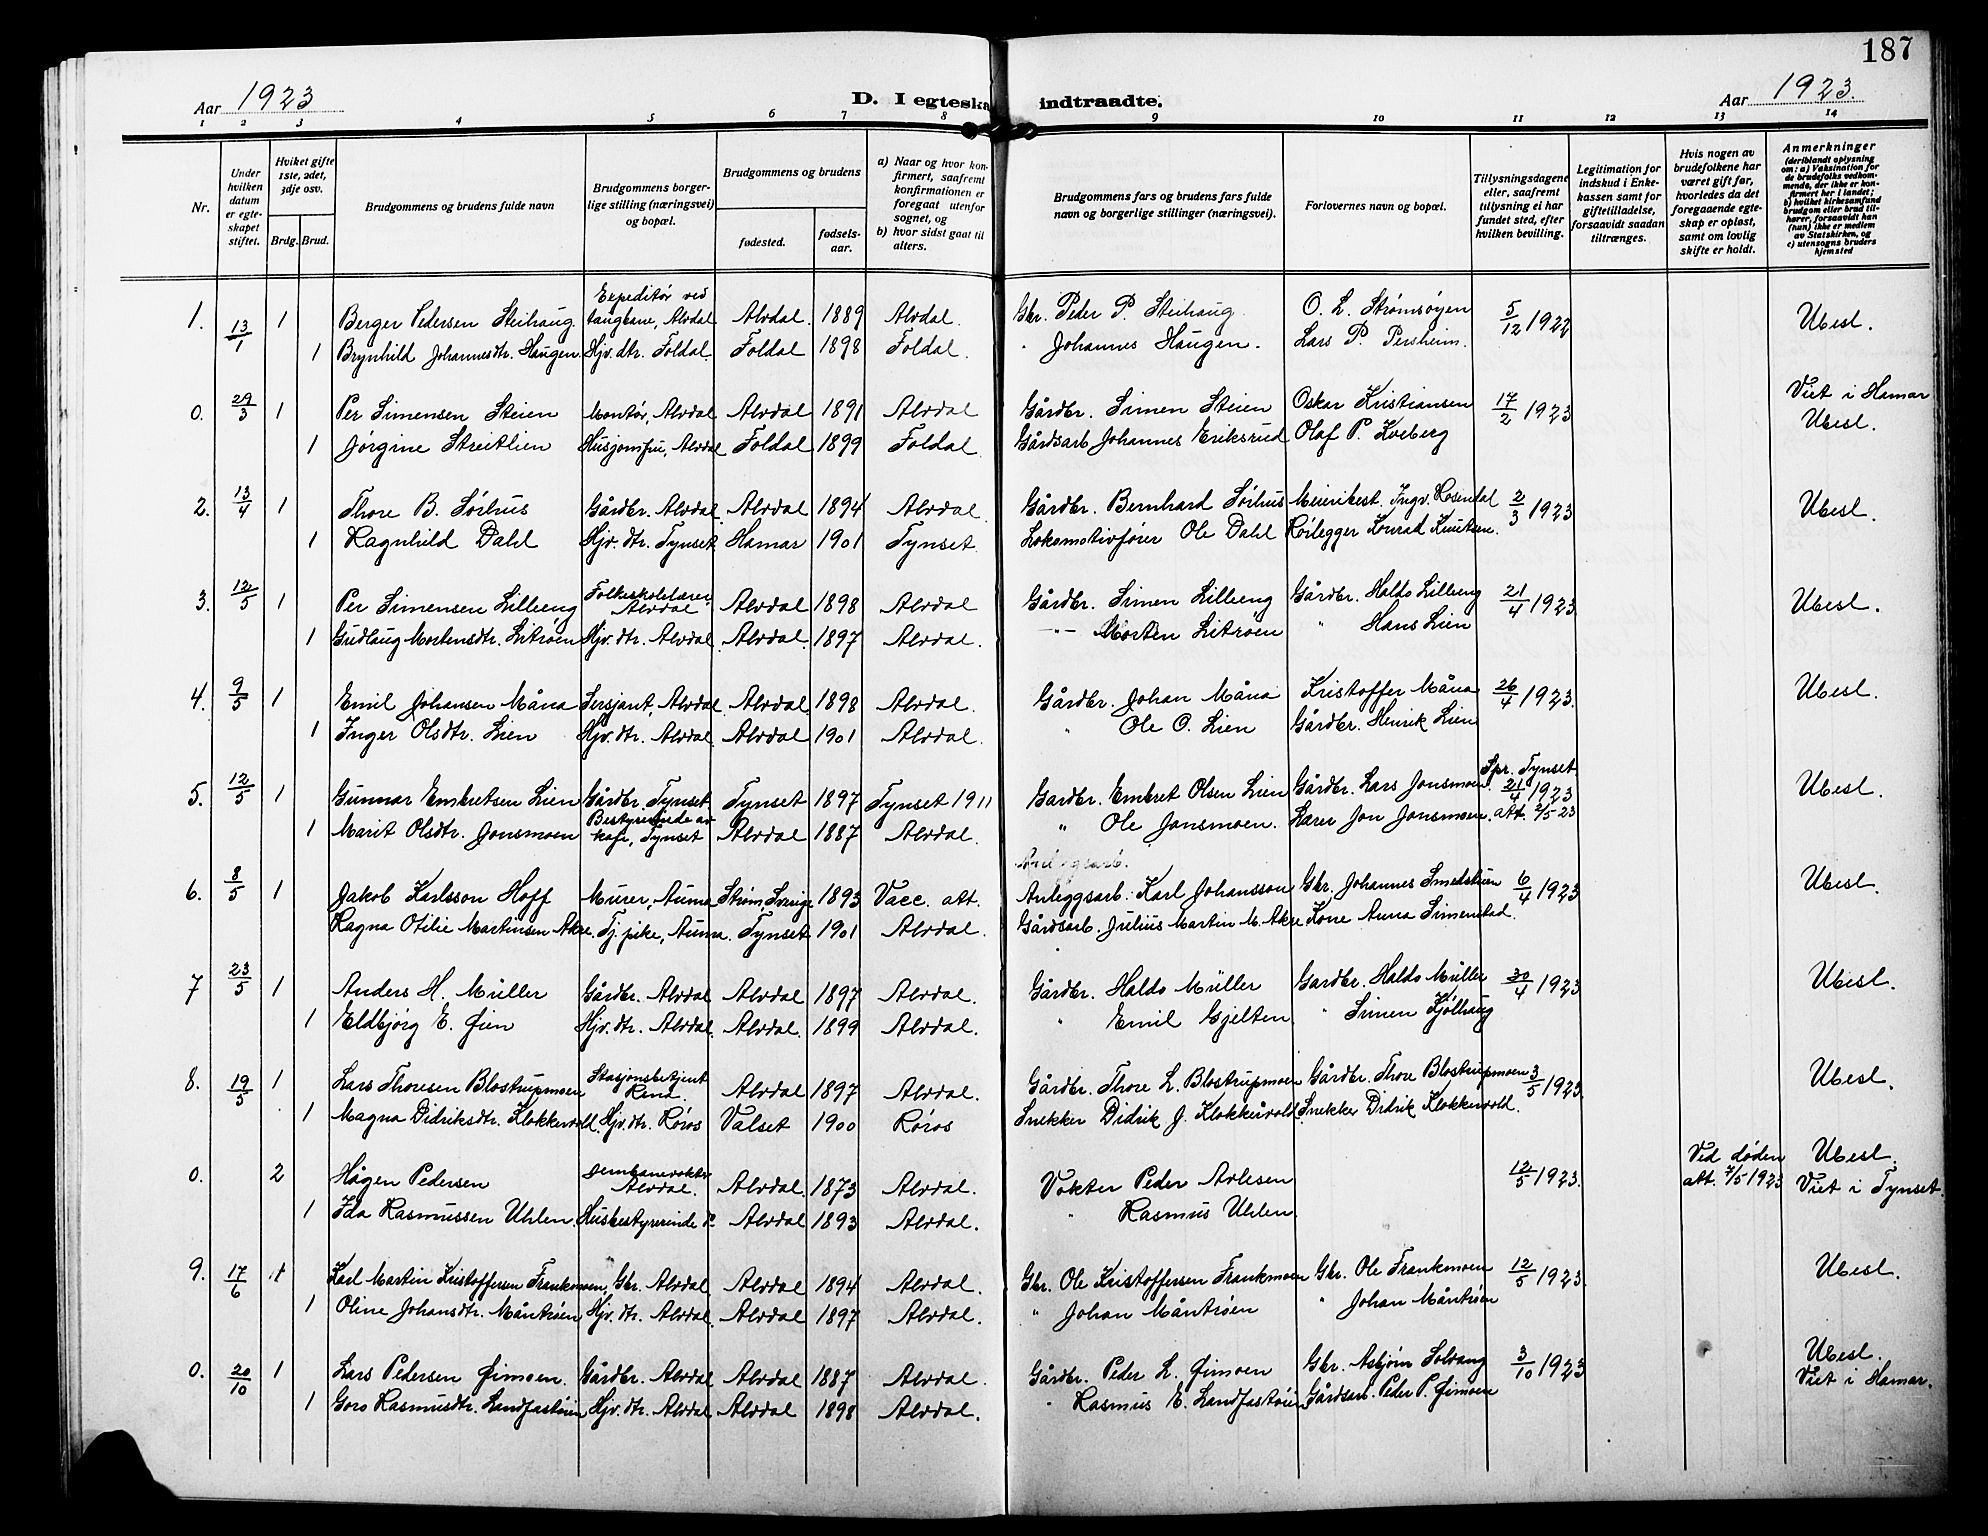 187
Aar 1923
D. I egteska indtraadte.
Aar 1923.
1 2 3 4 5 6 7 8 9 10 11 12 13 14
Nr.
Under hvilken datum er egteskapet stiftet.
Hviket gifte 1ste, 2det, 3dje osv.
Brdg. Brud.
Brudgommens og brudens fulde navn
Brudgommens borgerlige stilling (næringsvei) og bopæl.
Brudgommens og brudens
fødested.
fødselsaar.
a) Naar og hvor konfirmert, saafremt konfirmationen er foregaat utenfor sognet, og
b) hvor sidst gaat til alters.
Brudgommens fars og brudens fars fulde navn og borgerlige stillinger (næringsvei).
Forlovernes navn og bopæl.
Tillysningsdagene eller, saafremt tillysning ei har fundet sted, efter hvilken bevilling.
Legitimation for indskud i Enkekassen samt for giftetilladelse, forsaavidt saadan tiltrænges.
Hvis nogen av brudefolkene har været gift før, hvorledes da det foregaaende egteskap er opløst, samt om lovlig skifte er holdt.
Anmerkninger
(deriblandt oplysning om: a) Vaksination for de brudefolks vedkommende, der ikke er konfirmert her i landet; b) hvilket kirkesamfund brudgom eller brud tilhører, forsaavidt han (hun) ikke er medlem av Statskirken, og c) utensogns bruders hjemsted
1. 13/1 1 Berger Pedersen Steihaug. Expeditør ved taugbane, Alvdal Alvdal. 1889 Alvdal. Gbr. Peder P. Steihaug O. L. Strømsøyen 5/12 1922 Ubesl.
1 Brynhild Johannesdtr. Haugen Hjv. dtr. Foldal. Foldal 1898 Foldal. " Johannes Haugen. Lars P. Persheim.
0. 29/3 1 Per Simensen Steien Montør, Alvdal Alvdal 1891 Alvdal Gårdbr. Simen Steien Oskar Kristiansen 17/2 1923 Viet i Hamar Ubesl.
1 Jørgine Streitlien Husjomfru, Alvdal Foldal 1899 Foldal Gårdsarb. Johannes Eriksrud Olaf P. Kveberg
2. 13/4 1 Thore B. Sørhus Gårdbr. Alvdal Alvdal 1894 Alvdal. Gårdbr. Bernhard Sørhus Meieribest. Ingv. Rosendal 2/3 1923 Ubesl.
1 Ragnhild Dahl Hjv. dtr. Tynset Hamar 1901 Tynset. Lokomotivfører Ole Dahl Rørlegger Konrad Knutsen.
3. 12/5 1 Per Simensen Lilleeng Folkeskolelærer Alvdal Alvdal 1898 Alvdal Gårdbr. Simen Lilleeng Gårdbr. Haldo Lilleeng 21/4 1923 Ubesl.
1 Gudlaug Mortensdtr. Litrøen Hjv. dtr. Alvdal Alvdal. 1897 Alvdal. -"- Morten Litrøen " Hans Lien
4. 9/5 1 Emil Johansen Måna Sersjant, Alvdal Alvdal 1898 Alvdal. Gårdbr. Johan Måna Kristoffer Måna 26/4 1923. Ubesl.
1 Inger Olsdtr. Lien Hjv. dtr. Alvdal Alvdal 1901 Alvdal. " Ole O. Lien Gårdbr. Henrik Lien
5. 12/5 1 Gunnar Embretsen Lien Gårdbr. Tynset Tynset 1897 Tynset 1911 Gardbr. Embret Olsen Lien Gårdbr. Lars Jonsmoen Spr. Tynset 21/4 1923 Ubesl.
1 Marit Olsdtr. Jonsmoen Bestyrerinde av kafe, Tynset Alvdal 1887 Alvdal. " Ole Jonsmoen. Lærer Jon Jonsmoen. att. 2/5 23
6. 8/5 1 Jakob Karlsson Hoff Murer, Auma Strøm, Sverige 1893 Vacc. att. Anleggsarb. Karl Johansson Gbr. Johannes Smedstuen 6/4 1923 Ubesl.
Ragna Otilie Martinsen Akre. Tj. pike, Auma. Tynset 1901 Alvdal. Gårdsarb. Julius Martin M. Akre Kone Anna Simenstad.
7 23/5 1 Anders H. Müller Gårdbr. Alvdal Alvdal 1897 Alvdal. Gårdbr. Haldo Müller Gardbr. Haldo Müller 30/4 1923 Ubesl.
1 Eldbjørg E. Øien Hjv. dtr. Alvdal Alvdal. 1899 Alvdal. " Emil Gjelten " Simen Kjølhaug
8. 19/5 1 Lars Thoresen Blostrupmoen Stasjonsbetjent Rena. Alvdal 1897 Alvdal. Gårdbr. Thore L. Blostrupmoen Gårdbr. Thore Blostrupmoen 3/5 1923 Ubesl.
1 Magna Didriksdtr. Klokkervold. Hjv. dtr. Røros Valset 1900 Røros Snekker Didrik J. Klokkervold. Snekker Didrik Klokkervold.
0. 2 Hågen Pedersen Jernbanevokter Alvdal. Alvdal. 1873 Alvdal. Vokter Peder Avlesen 12/5 1923. Ved døden att. 7/5 1923 Ubesl. Viet i Tynset.
1 Ida Rasmussen Uhlen Husbestyrerinde Alvdal 1893 Alvdal. " Rasmus Uhlen.
9. 17/6 1 Karl Martin Kristoffersen Frankmoen, Gbr. Alvdal Alvdal 1894 Alvdal. Gbr. Ole Kristoffersen Frankmoen Gbr. Ole Frankmoen 12/5 1923. Ubesl.
1 Oline Johansdtr. Måntrøen Hjv. dtr. Alvdal. Alvdal 1897 Alvdal. " Johan Måntrøen " Johan Måntrøen
0. 20/10 1 Lars Pedersen Øimoen. Gårdbr. Alvdal Alvdal 1887 Alvdal. Gårdbr. Peder L. Øimoen Gbr. Asbjørn Solvang 3/10 1923 Ubesl. Viet i Hamar.
1 Goro Rasmusdtr. Landfastøien Hjv. dtr. Alvdal Alvdal 1898 Alvdal. " Rasmus E. Landfastøien Gårdsarb. Peder P. Øimoen